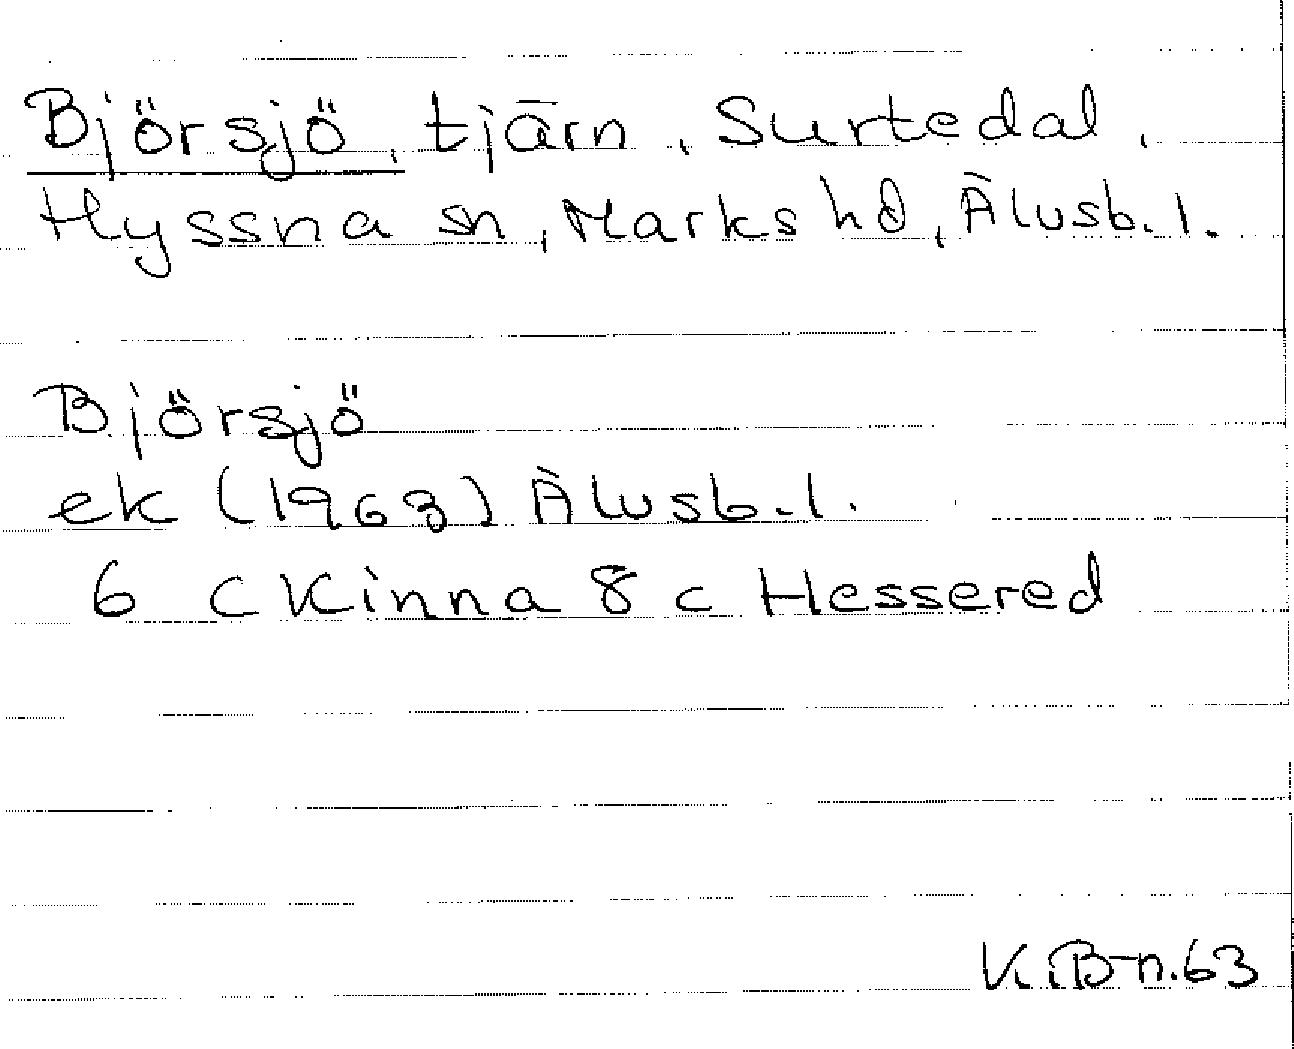 Björsjö, tjärn, Surtedal,
Hyssna sn, Marks hd, Älvsb. l.
Björsjö
ek (1963) Älvsb. l.
6 C Kinna 8 c Hessered
K. B-n. 63